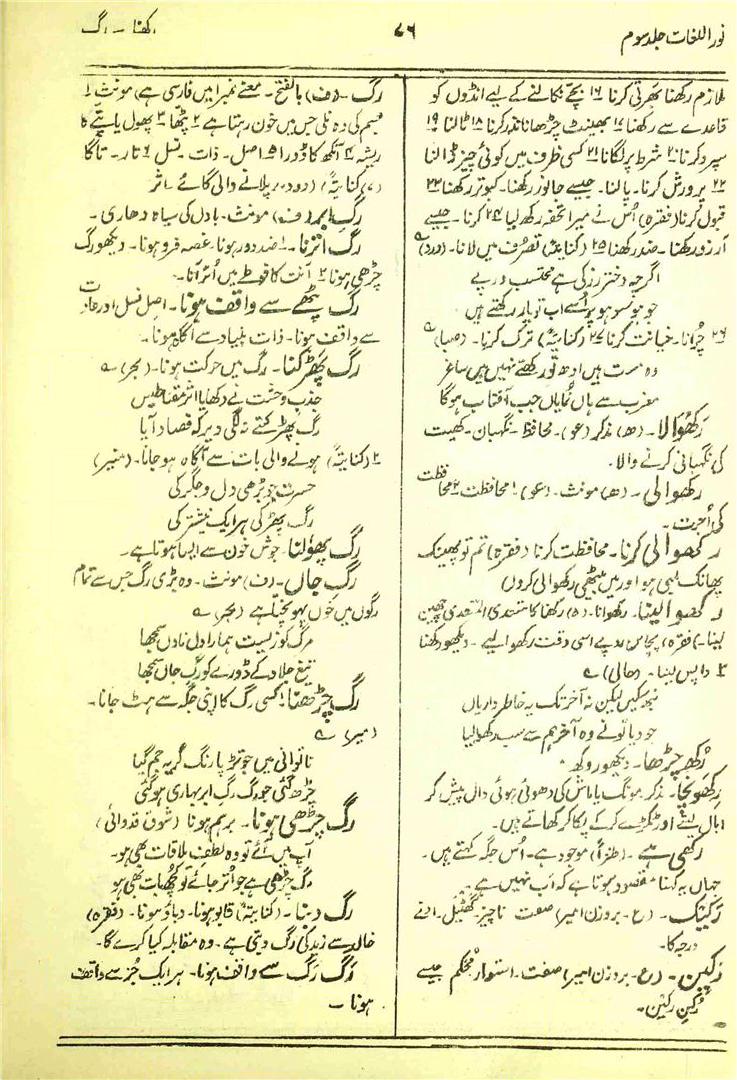 نور اللغات جلد سوم
۷۶
رکھنا - رگ
ملازم رکھنا بھرتی کرنا ۱۶ بچّے نکالنے کے لیے انڈوں کو
قاعدے سے رکھنا ۱۷ بھینٹ چڑھانا نذر کرنا ۱۸ ٹالنا ۱۹
سپرد کرنا ۲۰ شرط پر لگانا ۲۱ کسی ظرف میں کوئی چیز ڈالنا
۲۲ پرورش کرنا۔ پالنا۔ جیسے جانور رکھنا۔ کبوتر رکھنا ۲۳
قبول کرنا (فقرہ) اُس نے میرا تحفہ رکھ لیا ۲۴ کرنا۔ جیسے
آرزو رکھنا۔ ضد رکھنا ۲۵ (کنایۃً) تصرّف میں لانا۔ (درد) ؎
اگرچہ دختِ رز کی ہے محتسب درپے
جو ہو سو ہو پر اُسے اب تو یار رکھتے ہیں
۲۶ چُرانا۔ خیانت کرنا ۲۷ (کنایۃً) ترک کرنا۔ (صبا) ؎
وہ مست ہیں ادھر تو رکھتے نہیں ہیں ساغر
مغرب سے ہاں نمایاں جب آفتاب ہوگا
رکھوالا۔ (ھ) مذکر (عو)۔ محافظ۔ نگہبان۔ کھیت
کی نگہبانی کرنے والا۔
رکھوالی۔ (ھ) مونث۔ (عو) ۱ محافظت ۲ محافظت
کی اُجرت۔
رکھوالی کرنا۔ محافظت کرنا (فقرہ) تم تو پھینک
پھانک لیتی ہو اور میں بیٹھی رکھوالی کروں
رکھوا لینا۔ رکھوانا۔ (ہ) رکھنا کا متعدی المتعدی چھین
لینا۔ (فقرہ) پچاس روپے اسی وقت رکھوا لیے۔ دیکھو رکھنا
۲ واپس لینا۔ (حالی) ؎
نبھ سکیں لیکن نہ آخر تک یہ خاطر داریاں
جو دیا تو نے وہ آخر ہم سے سب رکھوا لیا
رکھ چڑھا۔ دیکھو روکھ۔
رکھونچا۔ مذکر مونگ یا ماش کی دھوئی ہوئی دال پیس کر
ابال لیتے اور ٹکڑے کرکے پکا کر کھاتے ہیں۔
رکھی ہے۔ (طنزاً) موجود ہے۔ اُس جگہ کہتے ہیں۔
جہاں یہ کہنا مقصود ہوتا ہے کہ اب نہیں ہے۔
رکیک۔ (ع۔ بروزن امیر) صفت ناچیز۔ گھٹیل۔ ادنےٰ
درجہ کا۔
رکین۔ (ع۔ بروزن امیر) صفت۔ استوار محکم جیسے
رکن رکین۔
رگ۔ (ف) بالفتح۔ معنے نمبر ۱ میں فارسی ہے) مونث ۱
قسم کی وہ نلی جس میں خون رہتا ہے ۲ پٹھا ۳ پھول یا پتّے کا
ریشہ ۴ آنکھ کا ڈورا ۵ اصل۔ ذات۔ نسل ۶ تار۔ تاگا
(۷) (کنایۃً) (دودھ پلانے والی کا) اثر
رگِ ابر (ف) مونث۔ بادل کی سیاہ دھاری۔
رگ اترنا۔ ۱ ضد دور ہونا۔ غصہ فرو ہونا۔ دیکھو رگ
چڑھی ہونا ۲ آنت کا فوطے میں اُتر آنا۔
رگ پٹھے سے واقف ہونا۔ اصل نسل اور عادت
سے واقف ہونا۔ ذات بنیاد سے آگاہ ہونا۔
رگ پھڑکنا۔ رگ میں حرکت ہونا۔ (بحر) ؎
جذبِ وحشت نے دکھایا اثرِ مقناطیس
رگ پھڑکنے نہ لگی دیر کہ فصاد آیا
۲ (کنایۃً) ہونے والی بات سے آگاہ ہو جانا۔ (منیر)
حسرت جو بڑھی دل و جگر کی
رگ پھڑکی ہر ایک نیشتر کی
رگ پھولنا۔ جوش خون سے ایسا ہوتا ہے۔
رگِ جاں۔ (ف) مونث۔ وہ بڑی رگ جس سے تمام
رگوں میں خون پہونچتا ہے (بحر) ؎
مرگ کو زیست ہمارا دلِ ناداں سمجھا
تیغِ جلاد کے ڈورے کو رگِ جاں سمجھا
رگ چڑھنا ۱ کسی رگ کا اپنی جگہ سے ہٹ جانا۔
(میر) ؎
ناتوانی میں جو تڑپا رنگِ گریہ جم گیا
چڑھ گئی جو رگ رگِ ابرِ بہاری ہوگئی
رگ چڑھی ہونا۔ برہم ہونا (شوق قدوائی)
آپ میں آئے تو وہ لطفِ ملاقات بھی ہو۔
رگ چڑھی ہے جو اُتر جائے تو کچھ بات بھی ہو
رگ دبنا۔ (کنایۃً) قابو ہونا۔ دباؤ ہونا۔ (فقرہ)
خالد سے زید کی رگ دبتی ہے۔ وہ مقابلہ کیا کرے گا۔
رگ رگ سے واقف ہونا۔ ہر ایک جُز سے واقف
ہونا۔